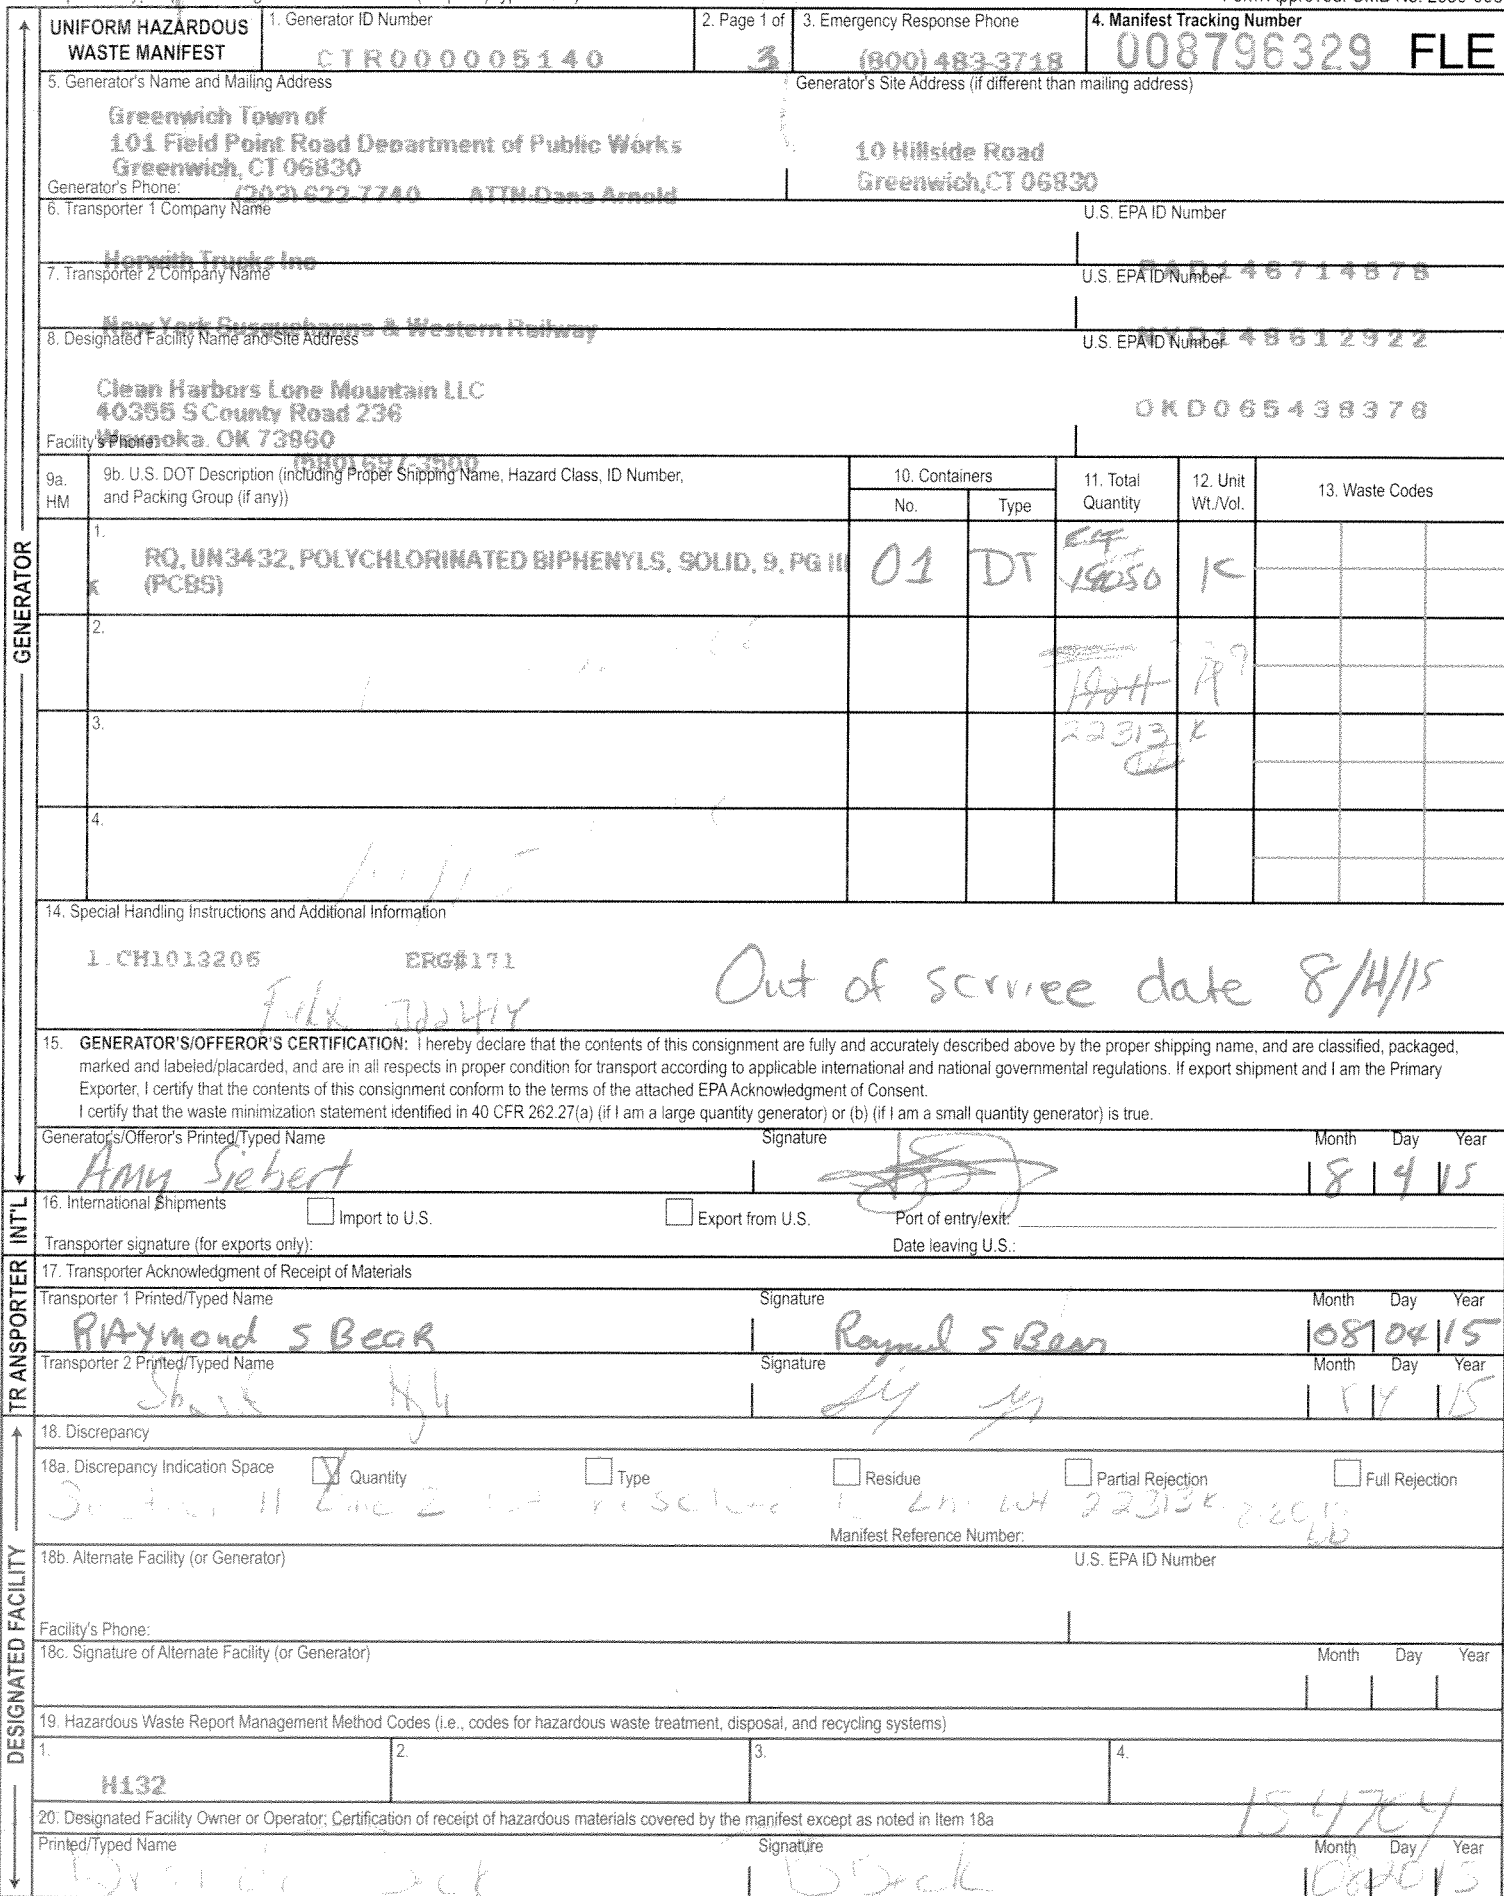 UNIFORM HAZARDOUS WASTE MANIFEST
1. Generator ID Number
CTR000005140
2. Page 1 of
3
3. Emergency Response Phone
(800) 483-3718
4. Manifest Tracking Number
008796329 FLE
5. Generator's Name and Mailing Address
Generator's Site Address (if different than mailing address)
Greenwich Town of
101 Field Point Road Department of Public Works
Greenwich, CT 06830
10 Hillside Road
Greenwich, CT 06830
Generator's Phone: (203) 622-7740 ATTN:Dana Arnold
6. Transporter 1 Company Name
U.S. EPA ID Number
Horwith Trucks Inc
7. Transporter 2 Company Name
U.S. EPA ID Number
New York Susquehanna & Western Railway
8. Designated Facility Name and Site Address
U.S. EPA ID Number
Clean Harbors Lone Mountain LLC
40355 S County Road 236
Waynoka. OK 73860
OKD065438376
Facility's Phone: (580) 697-3500
9a. HM
9b. U.S. DOT Description (including Proper Shipping Name, Hazard Class, ID Number, and Packing Group (if any))
10. Containers
No.
Type
11. Total Quantity
12. Unit Wt./Vol.
13. Waste Codes
1.
X
RQ, UN3432, POLYCHLORINATED BIPHENYLS, SOLID, 9, PG III
(PCBS)
01 DT K
2.
3.
22313 K
4.
14. Special Handling Instructions and Additional Information
1. CH1013206 ERG#171
Out of service date 8/4/15
15. GENERATOR'S/OFFEROR'S CERTIFICATION: I hereby declare that the contents of this consignment are fully and accurately described above by the proper shipping name, and are classified, packaged,
marked and labeled/placarded, and are in all respects in proper condition for transport according to applicable international and national governmental regulations. If export shipment and I am the Primary
Exporter, I certify that the contents of this consignment conform to the terms of the attached EPA Acknowledgment of Consent.
I certify that the waste minimization statement identified in 40 CFR 262.27(a) (if I am a large quantity generator) or (b) (if I am a small quantity generator) is true.
Generator's/Offeror's Printed/Typed Name
Signature
Month Day Year
Amy Siebert
8 4 15
16. International Shipments
Import to U.S.
Export from U.S.
Port of entry/exit:
Transporter signature (for exports only):
Date leaving U.S.:
17. Transporter Acknowledgment of Receipt of Materials
Transporter 1 Printed/Typed Name
Signature
Month Day Year
RAymond S BeaR
Raymond S Bear
08 04 15
Transporter 2 Printed/Typed Name
Signature
Month Day Year
15
18. Discrepancy
18a. Discrepancy Indication Space
Quantity
Type
Residue
Partial Rejection
Full Rejection
22313K
Manifest Reference Number:
18b. Alternate Facility (or Generator)
U.S. EPA ID Number
Facility's Phone:
18c. Signature of Alternate Facility (or Generator)
Month Day Year
19. Hazardous Waste Report Management Method Codes (i.e., codes for hazardous waste treatment, disposal, and recycling systems)
1.
H132
2.
3.
4.
20. Designated Facility Owner or Operator: Certification of receipt of hazardous materials covered by the manifest except as noted in Item 18a
Printed/Typed Name
Signature
Month Day Year
GENERATOR
INT'L
TRANSPORTER
DESIGNATED FACILITY